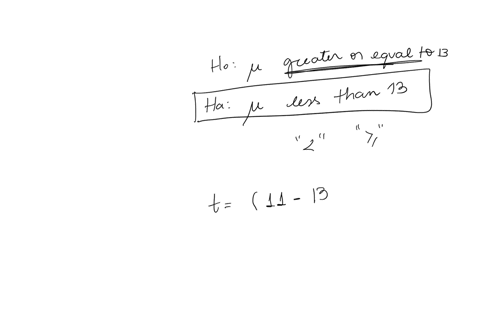 Ho: μ greater or equal to 13
Ha: μ less than 13
"<" "≥"
t = (11 - 13